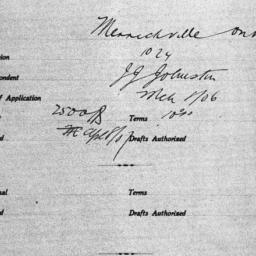 Merrickville Ont
ion
1024
pondent
J J Johnston
f Application
Mch 1/06
2500
Terms 1090
d
Drafts Authorized
nal Terms
d Drafts Authorized